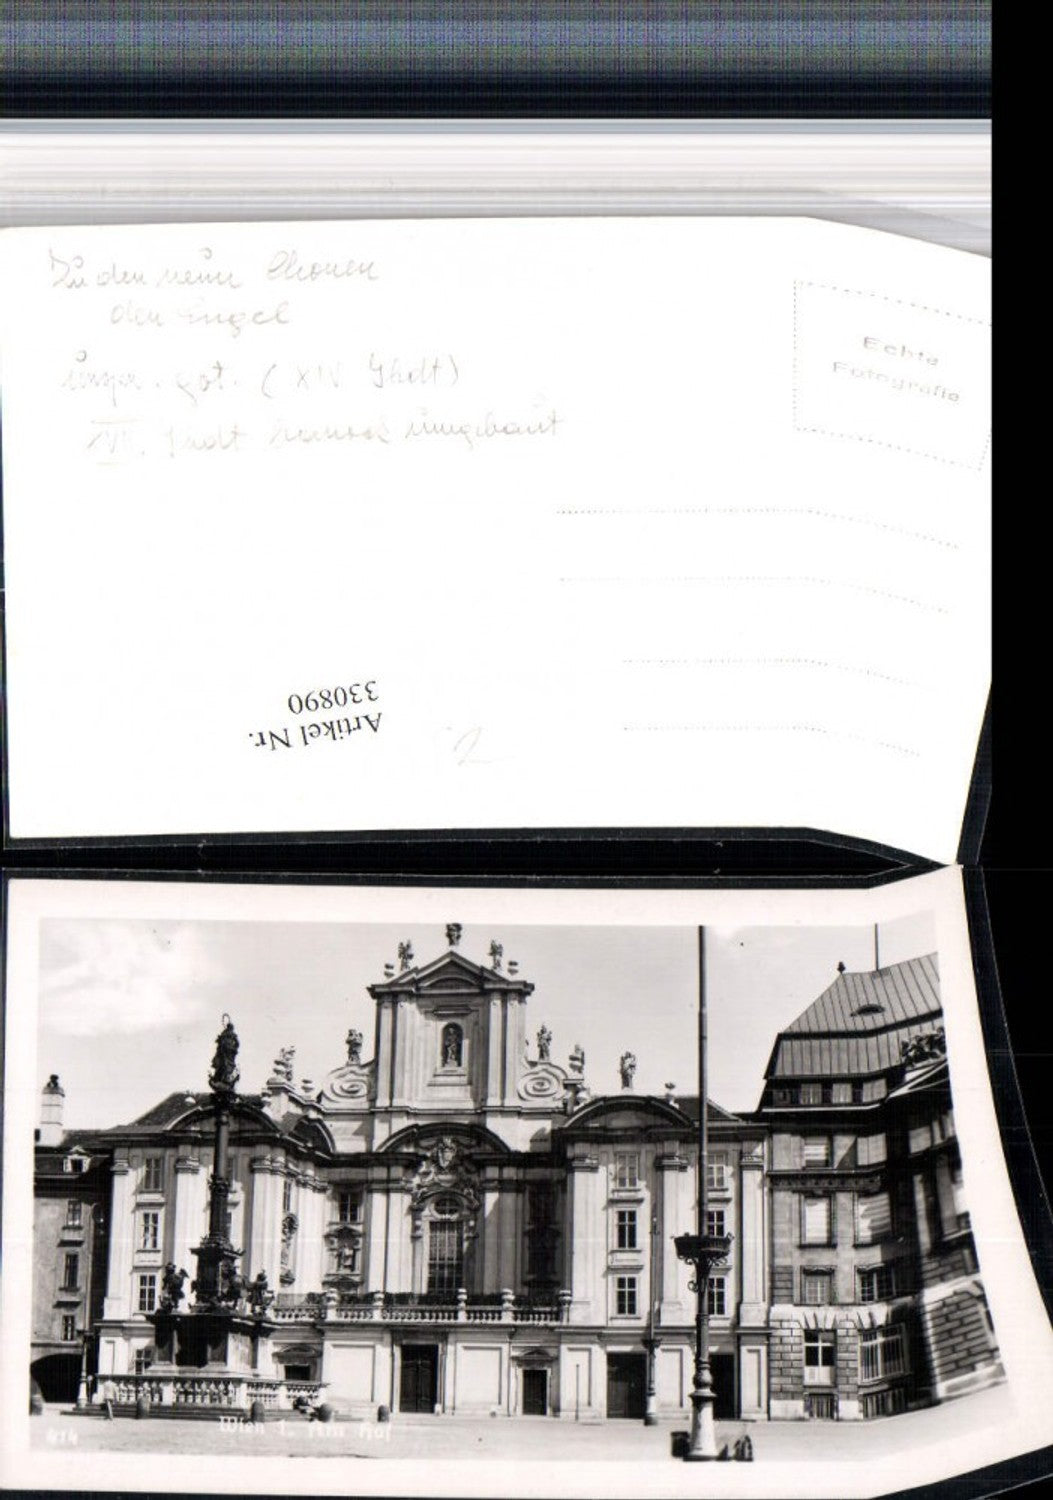 Zu den neun Chören
der Engel
urspr. got. (XIV Jhdt)
barock umgebaut
Echte
Fotografie
Artikel Nr.
330890
52
414
Wien I. Am Hof